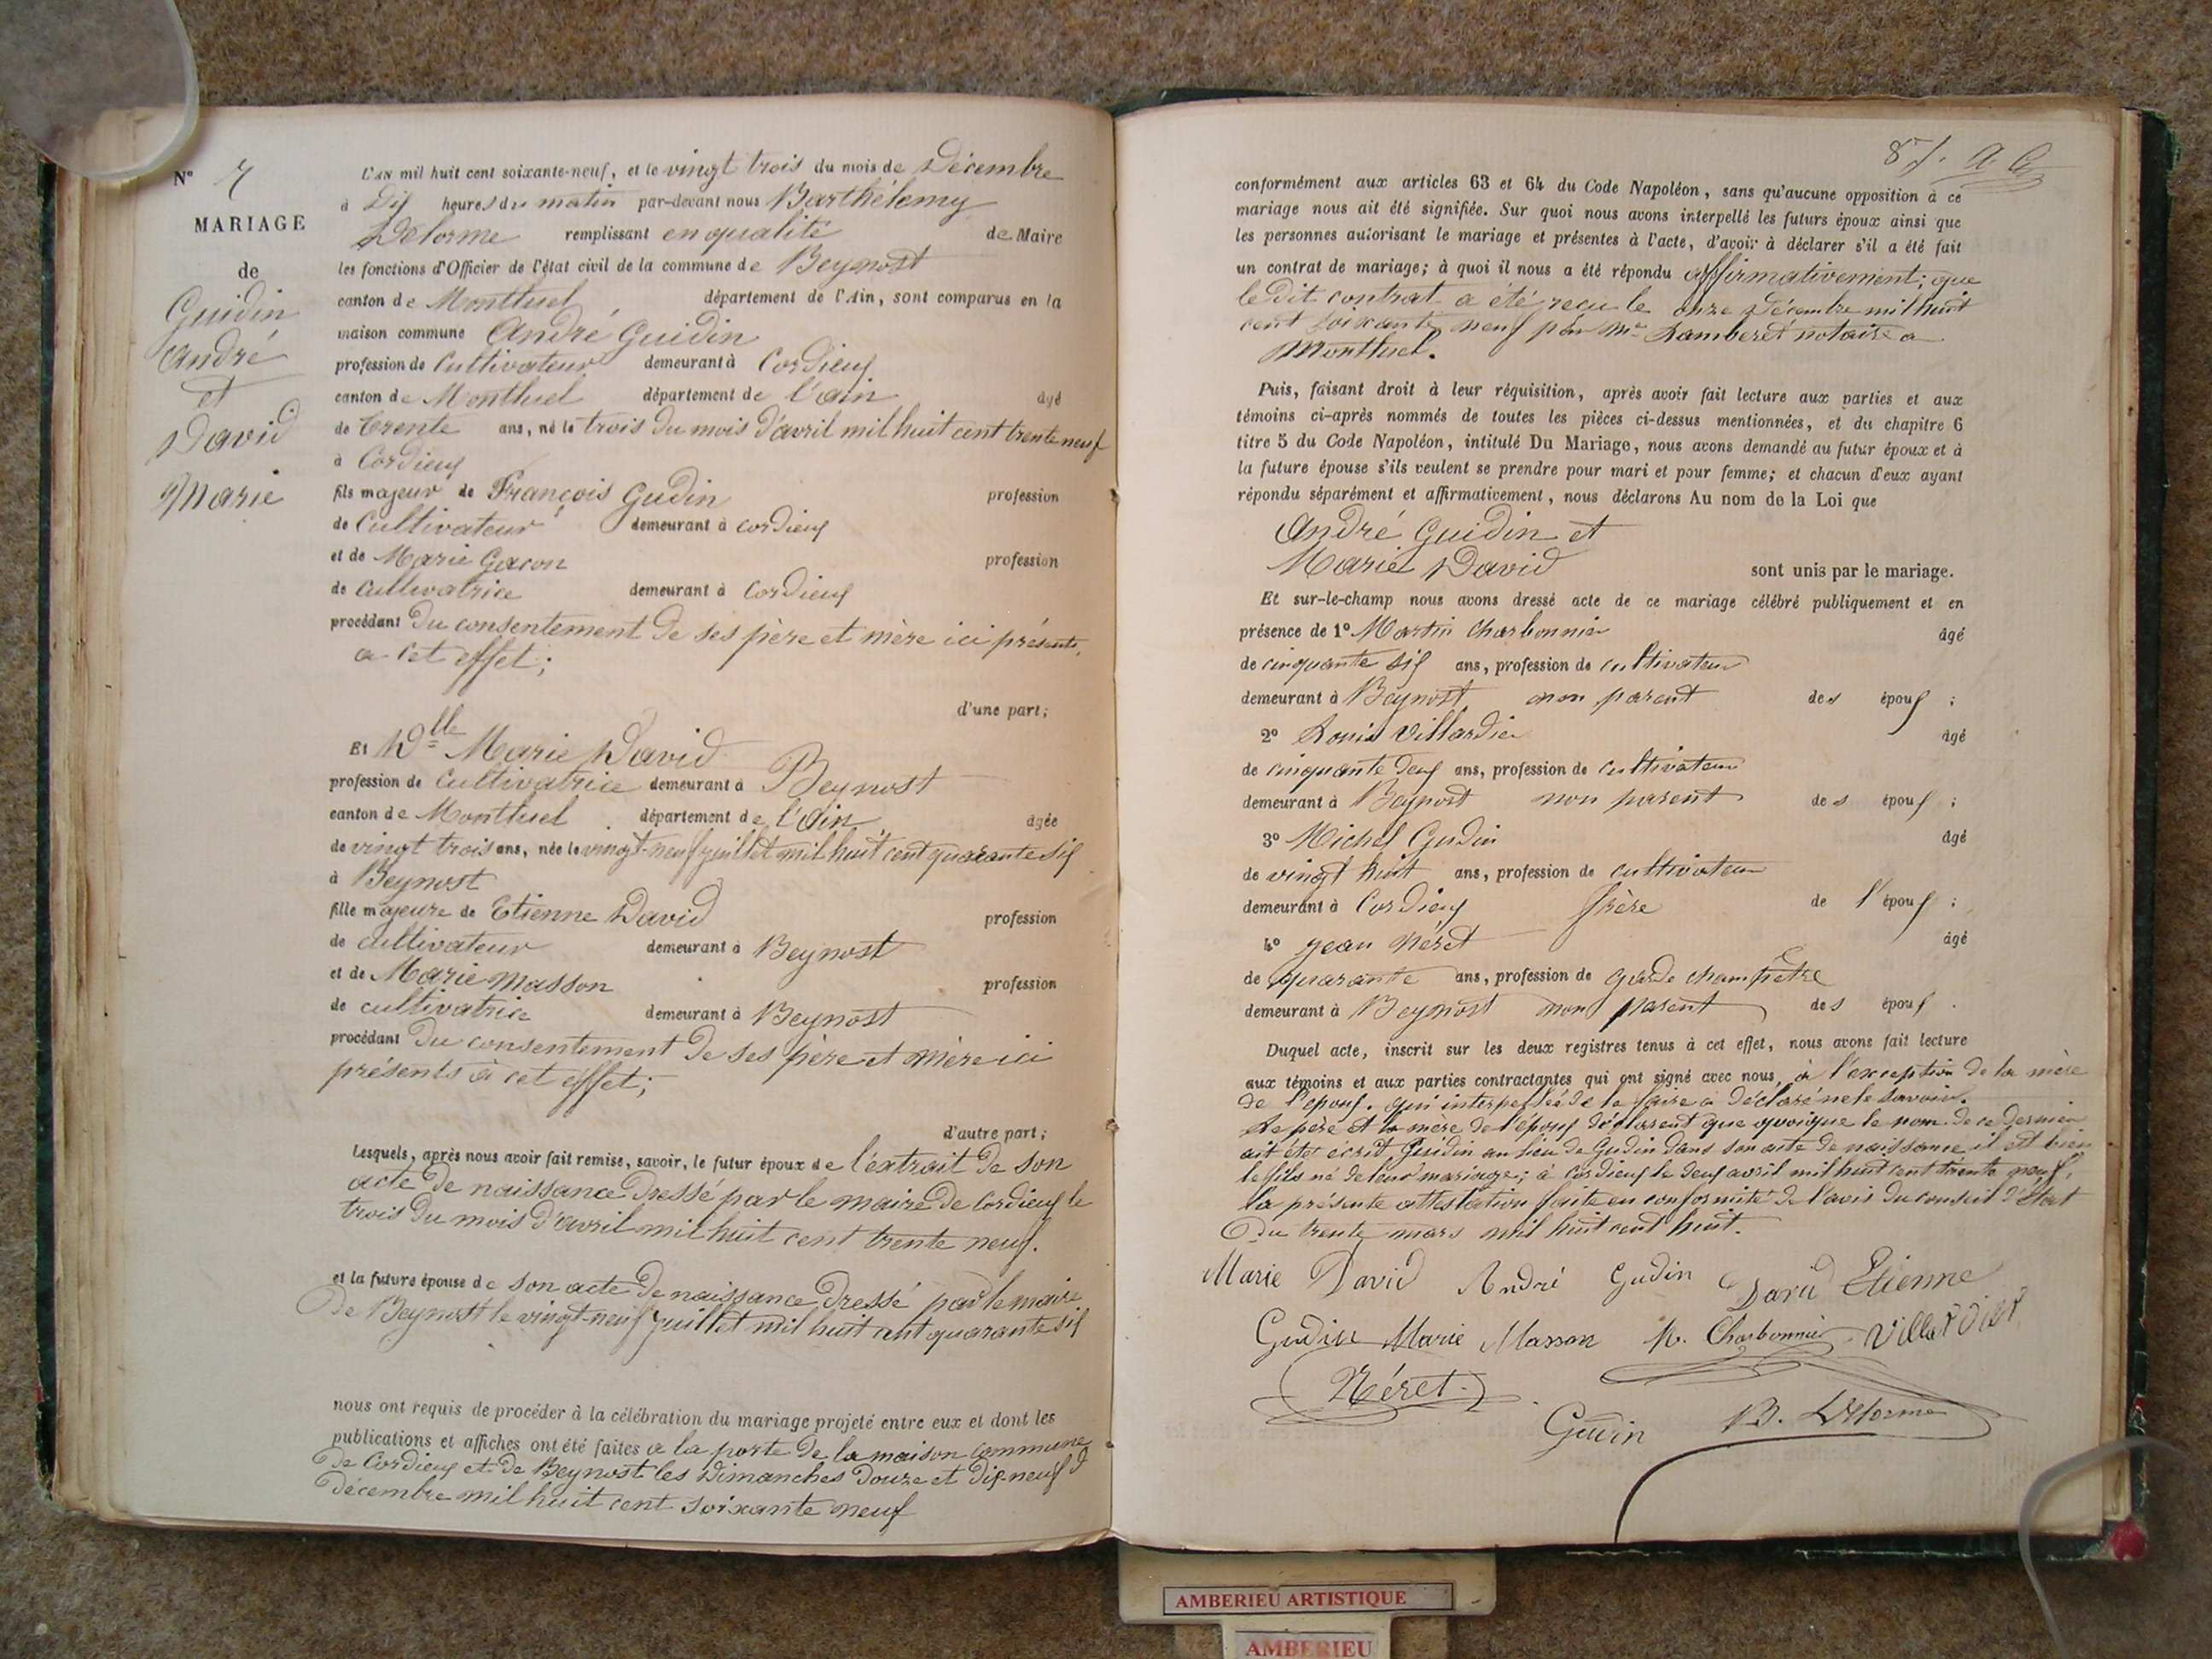 N° 7
MARIAGE
de
Guidin
André
et
David
Marie
L'AN mil huit cent soixante-neuf, et le vingt trois du mois de Décembre
à Dix heures du matin par-devant nous Barthélemy
Delorme remplissant en qualité de Maire
les fonctions d'Officier de l'état civil de la commune de Beynost
canton de Montluel département de l'Ain, sont comparus en la
maison commune André Guidin
profession de Cultivateur demeurant à Cordieux
canton de Montluel département de l'ain âgé
de trente ans, né le trois du mois d'avril mil huit cent trente neuf
à Cordieux
fils majeur de François Gudin profession
de Cultivateur demeurant à cordieux
et de Marie Gacon profession
de cultivatrice demeurant à Cordieux
procédant du consentement de ses père et mère ici présents,
a cet effet;
d'une part;
Et Dlle Marie David
profession de Cultivatrice demeurant à Beynost
canton de Montluel département de l'Ain âgée
de vingt trois ans, née le vingt-neuf juillet mil huit cent quarante six
à Beynost
fille majeure de Etienne David profession
de cultivateur demeurant à Beynost
et de Marie Masson profession
de cultivatrice demeurant à Beynost
procédant du consentement de ses père et mère ici
présents à cet effet;
d'autre part;
Lesquels, après nous avoir fait remise, savoir, le futur époux de l'extrait de son
acte de naissance dressé par le maire de Cordieux le
trois du mois d'avril mil huit cent trente neuf.
et la future épouse de son acte de naissance dressé par le maire
de Beynost le vingt-neuf juillet mil huit cent quarante six
nous ont requis de procéder à la célébration du mariage projeté entre eux et dont les
publications et affiches ont été faites a la porte de la maison commune
de Cordieux et de Beynost les Dimanches douze et dix-neuf
décembre mil huit cent soixante neuf
conformément aux articles 63 et 64 du Code Napoléon, sans qu'aucune opposition à ce
mariage nous ait été signifiée. Sur quoi nous avons interpellé les futurs époux ainsi que
les personnes autorisant le mariage et présentes à l'acte, d'avoir à déclarer s'il a été fait
un contrat de mariage; à quoi il nous a été répondu affirmativement; que
le dit contrat a été reçu le onze décembre mil huit
cent soixante neuf par Me Lamberet notaire a
Montluel.
Puis, faisant droit à leur réquisition, après avoir fait lecture aux parties et aux
témoins ci-après nommés de toutes les pièces ci-dessus mentionnées, et du chapitre 6
titre 5 du Code Napoléon, intitulé Du Mariage, nous avons demandé au futur époux et à
la future épouse s'ils veulent se prendre pour mari et pour femme; et chacun d'eux ayant
répondu séparément et affirmativement, nous déclarons Au nom de la Loi que
André Guidin et
Marie David sont unis par le mariage.
Et sur-le-champ nous avons dressé acte de ce mariage célébré publiquement et en
présence de 1° Martin Charbonnier âgé
de cinquante six ans, profession de cultivateur
demeurant à Beynost non parent des époux ;
2° Louis Villardier âgé
de cinquante deux ans, profession de cultivateur
demeurant à Beynost non parent des époux ;
3° Michel Gudin âgé
de vingt huit ans, profession de cultivateur
demeurant à Cordieux frère de l'époux ;
4° Jean Néret âgé
de quarante ans, profession de garde champêtre
demeurant à Beynost non parent des époux .
Duquel acte, inscrit sur les deux registres tenus à cet effet, nous avons fait lecture
aux témoins et aux parties contractantes qui ont signé avec nous, à l'exception de la mère
de l'époux. qui interpellée de le faire a déclaré ne le savoir.
Le père et la mère de l'époux déclarent que quoique le nom de ce dernier
ait été écrit Guidin au lieu de Gudin dans son acte de naissance il est bien
le fils né de leur mariage; à Cordieux le deux avril mil huit cent trente neuf,
la présente attestation faite en conformité de l'avis du conseil d'État
du trente mars mil huit cent huit.
Marie David André Gudin David Etienne
Gudin Marie Masson M. Charbonnier Villardier
Néret
Gudin B. Delorme
AMBERIEU ARTISTIQUE
AMBERIEU